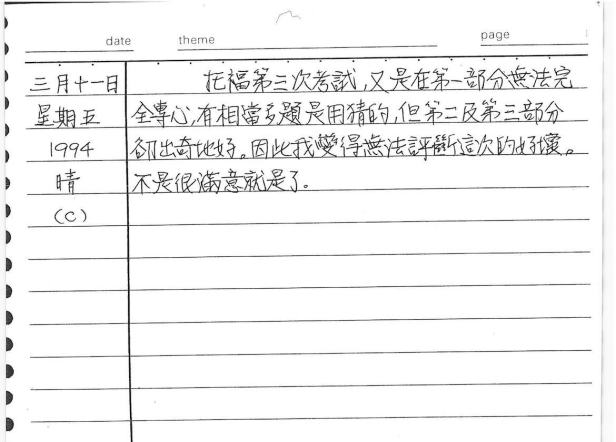 date theme page
三月十一日
星期五
1994
晴
(C)
托福第三次考試,又是在第一部分無法完
全專心,有相當多題是用猜的,但第二及第三部分
卻出奇地好。因此我變得無法評斷這次的好壞。
不是很滿意就是了。